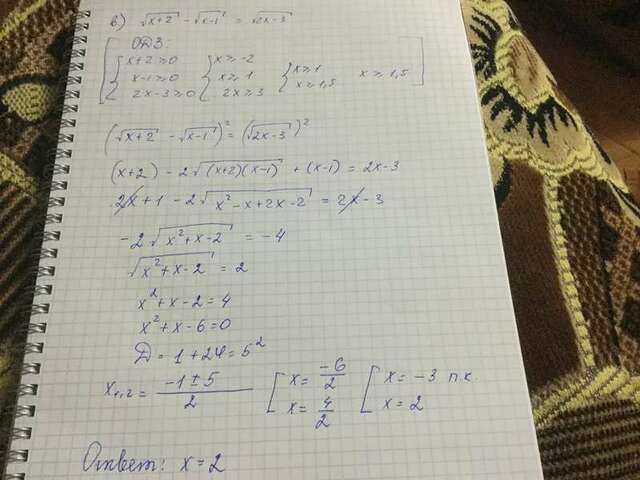 в) √(x+2) - √(x-1) = √(2x-3)
ОДЗ:
{ x+2 ≥ 0 { x ≥ -2
{ x-1 ≥ 0 { x ≥ 1 { x ≥ 1 x ≥ 1,5
{ 2x-3 ≥ 0 { 2x ≥ 3 { x ≥ 1,5
(√(x+2) - √(x-1))² = (√(2x-3))²
(x+2) - 2√((x+2)(x-1)) + (x-1) = 2x-3
2x + 1 - 2√(x²-x+2x-2) = 2x - 3
-2√(x²+x-2) = -4
√(x²+x-2) = 2
x²+x-2 = 4
x²+x-6=0
D = 1+24 = 5²
x₁,₂ = (-1±5)/2 [ x = -6/2 [ x = -3 п.к.
[ x = 4/2 [ x = 2
Ответ: x = 2